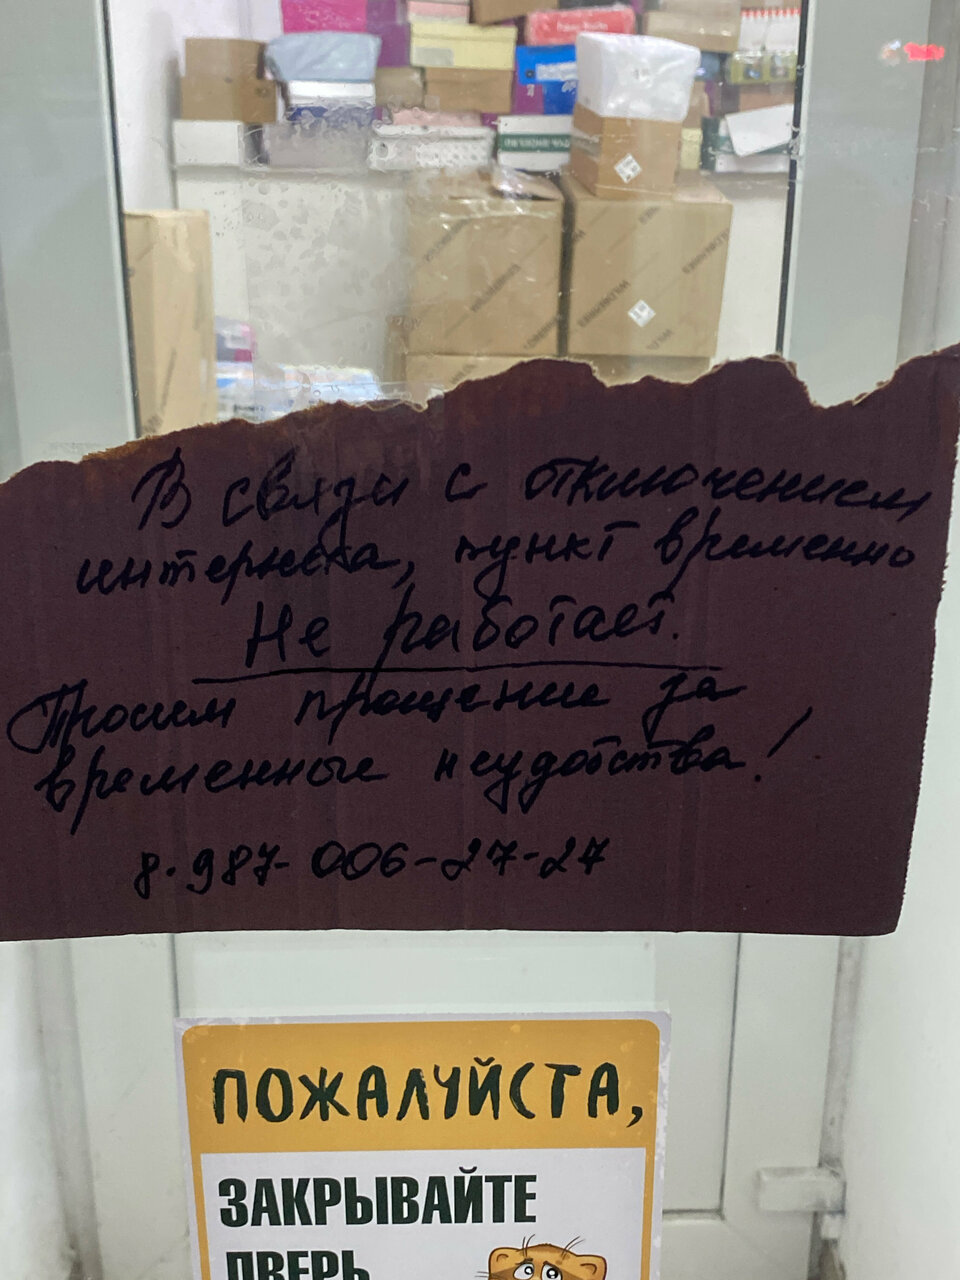 WILDBERRIES
В связи с отключением
интернета, пункт временно
Не работает.
Просим прощение за
временные неудобства!
8-987-006-27-27
ПОЖАЛУЙСТА,
ЗАКРЫВАЙТЕ
ДВЕРЬ